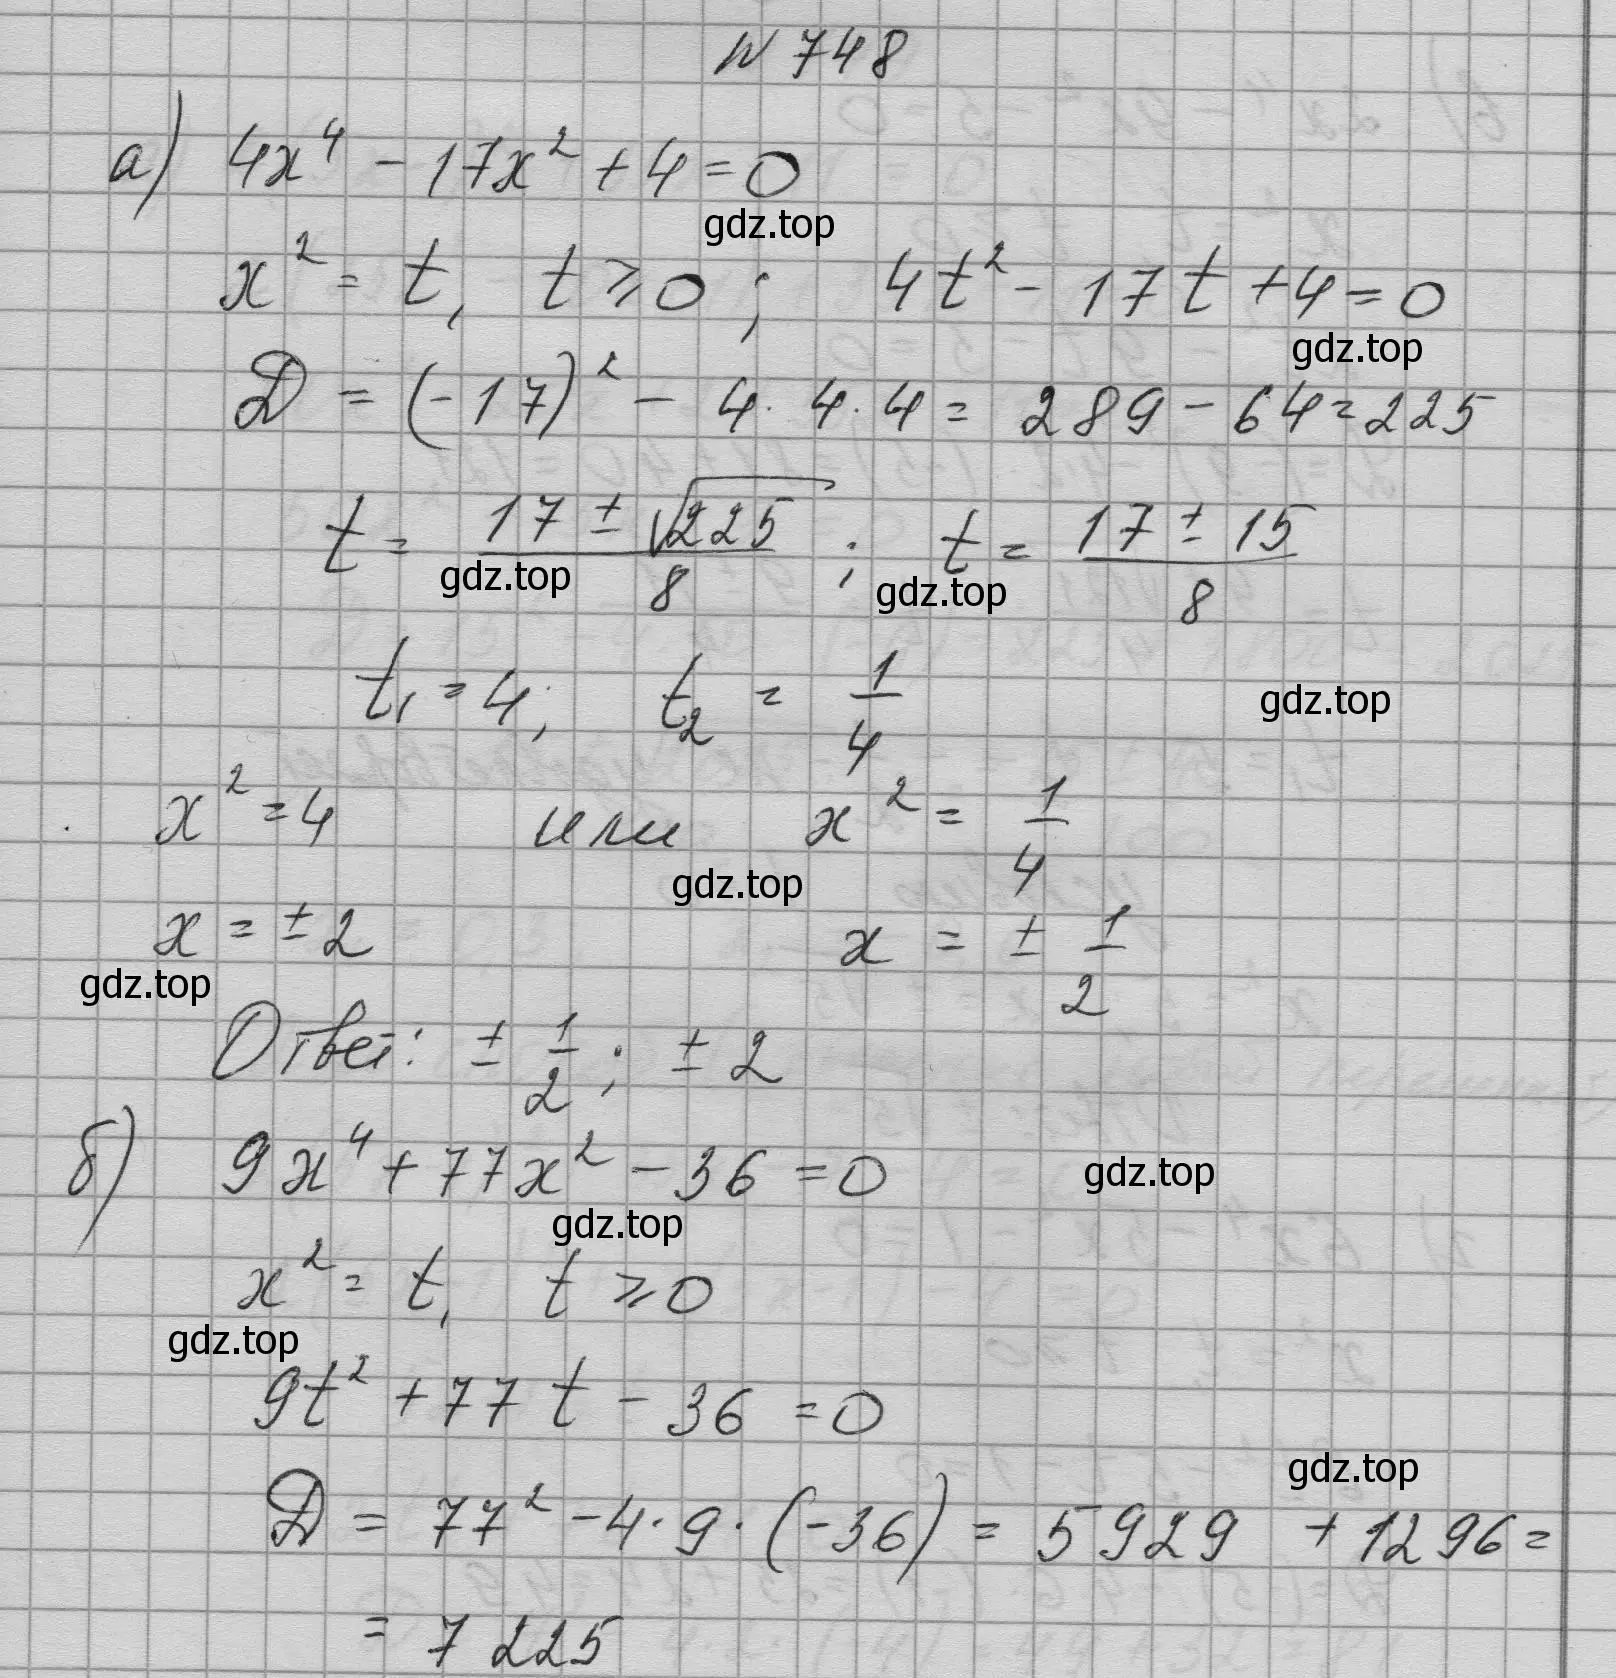 N 748
а) 4x⁴ - 17x² + 4 = 0
gdz.top
x² = t, t ⩾ 0 ; 4t² - 17t + 4 = 0
gdz.top
D = (-17)² - 4 · 4 · 4 = 289 - 64 = 225
t = (17 ± √225)/8 ; t = (17 ± 15)/8
gdz.top gdz.top
t₁ = 4; t₂ = 1/4
gdz.top
x² = 4 или x² = 1/4
gdz.top
x = ± 2 x = ± 1/2
gdz.top
Ответ: ± 1/2 ; ± 2
б) 9x⁴ + 77x² - 36 = 0
gdz.top
gdz.top
x² = t, t ⩾ 0
gdz.top
9t² + 77t - 36 = 0
gdz.top
D = 77² - 4 · 9 · (-36) = 5929 + 1296 =
= 7225